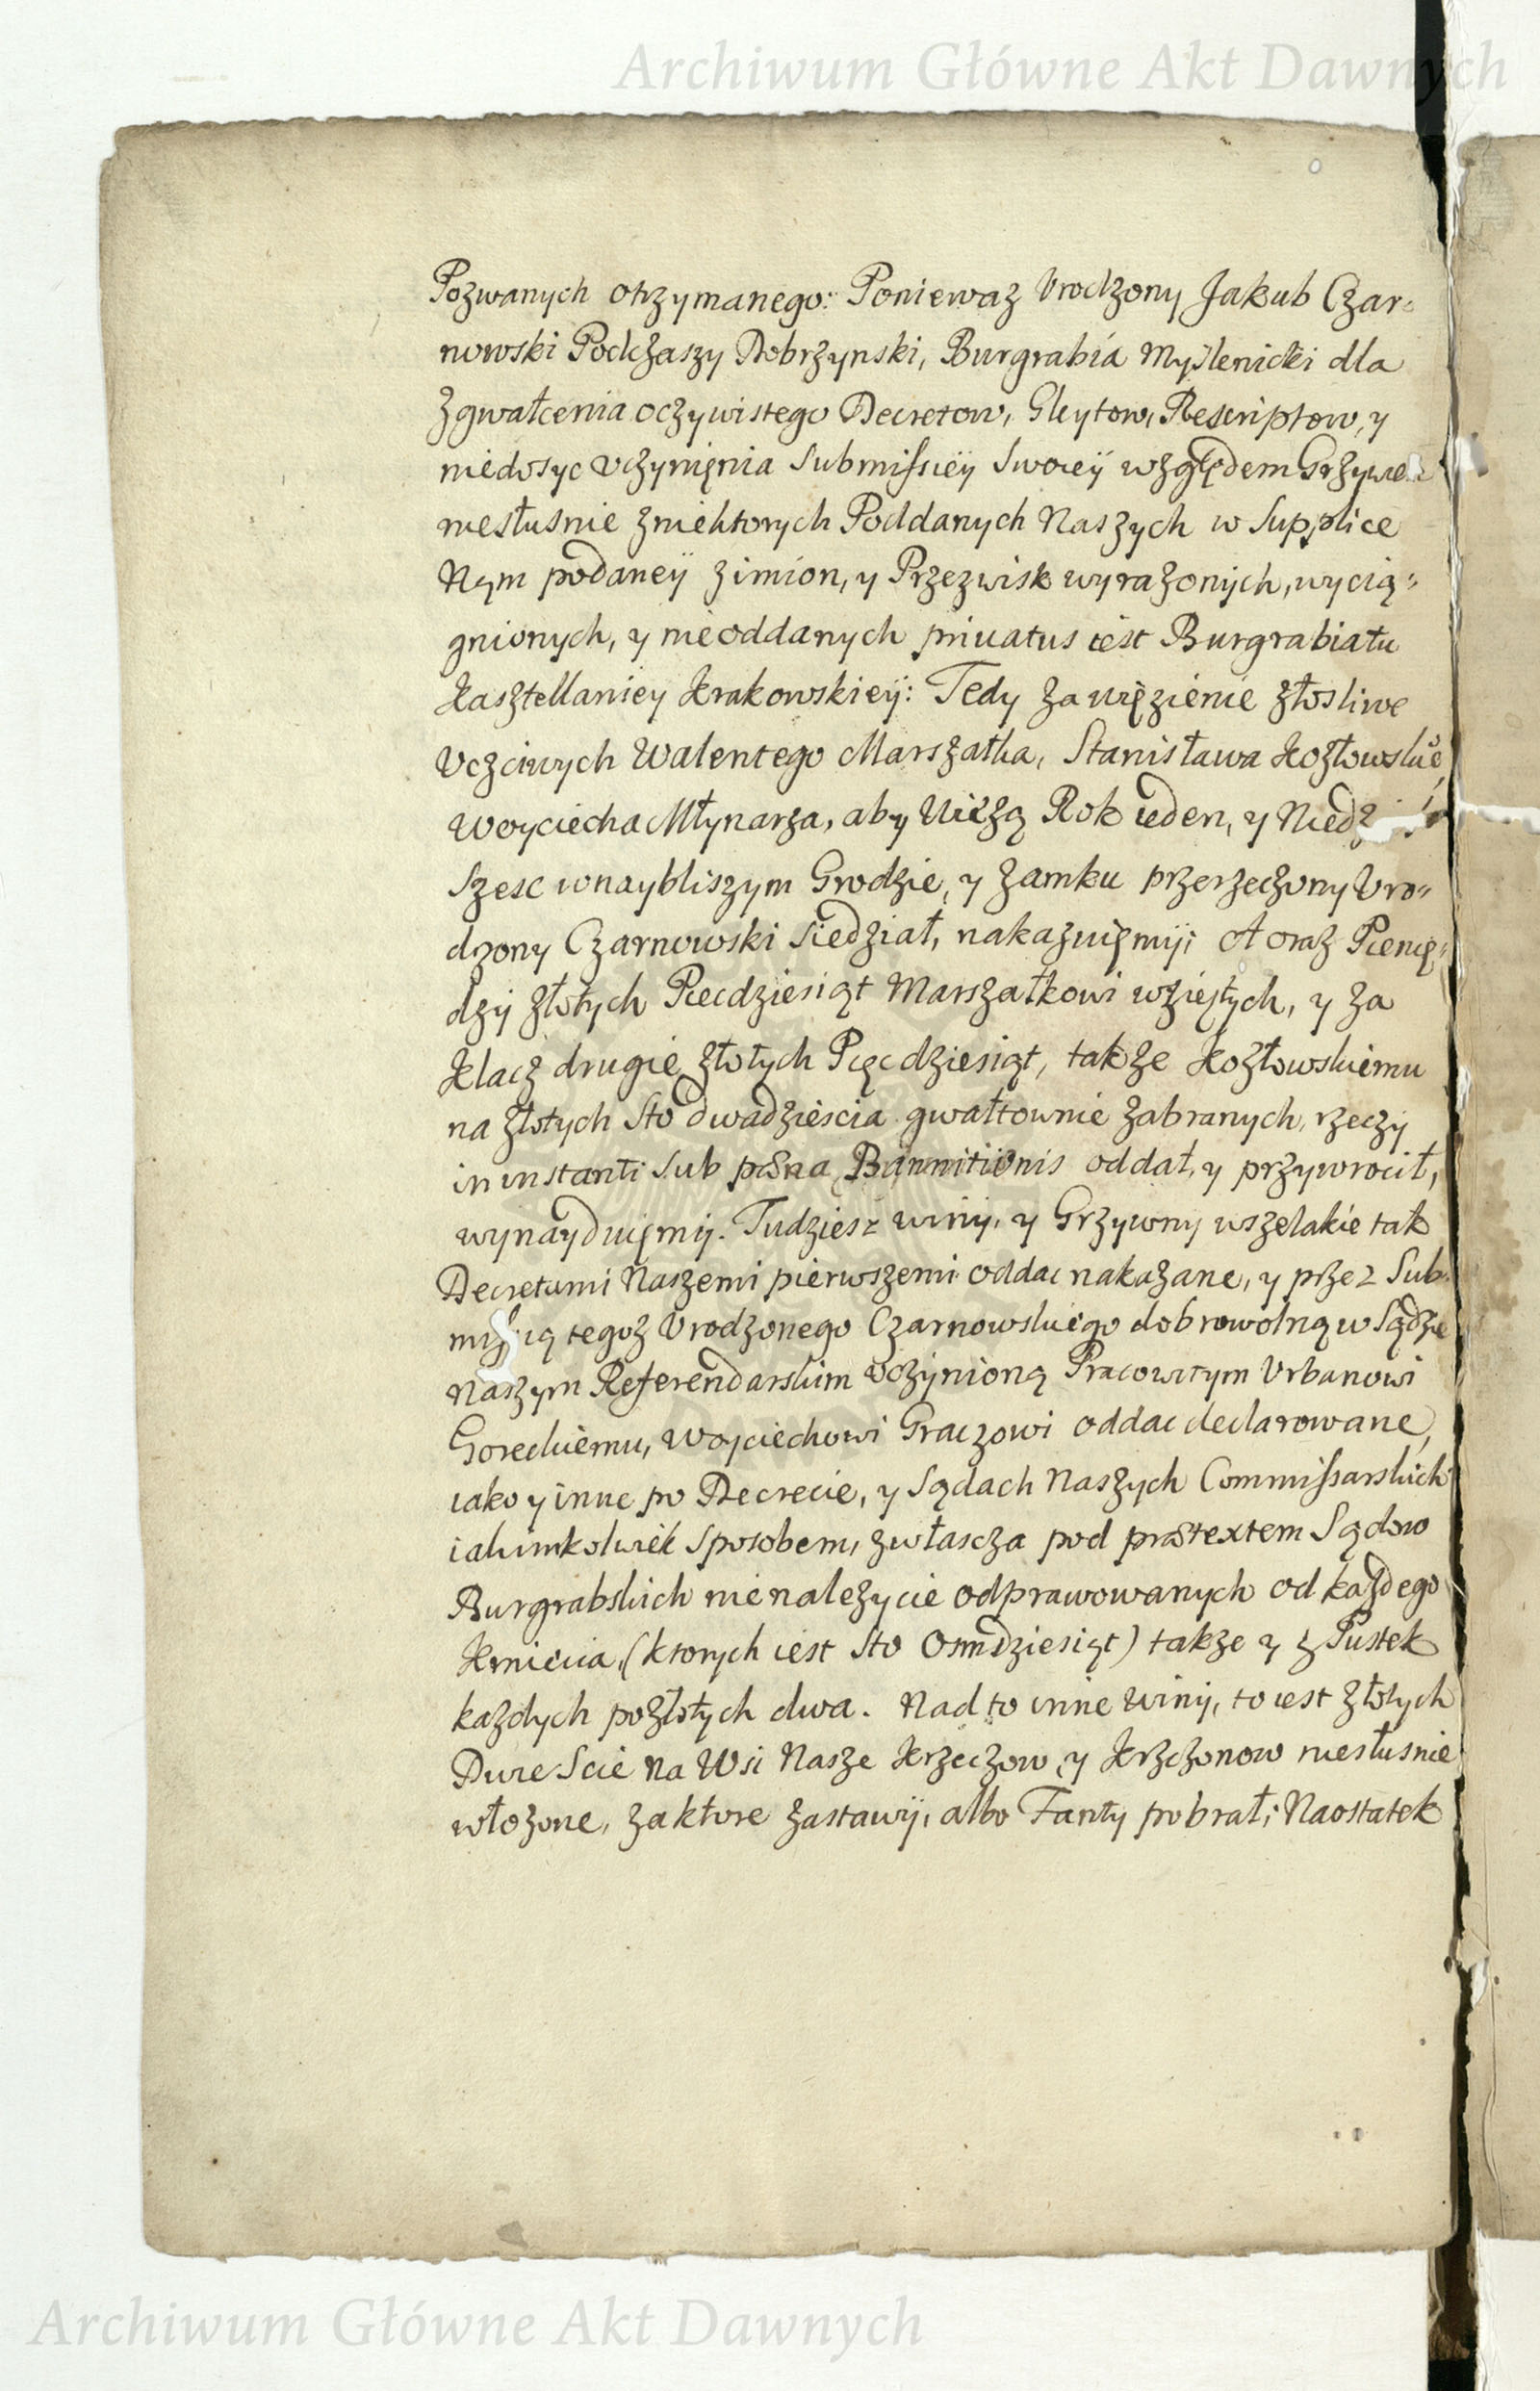 Archiwum Główne Akt Dawnych
Pozwanych otrzymanego: Poniewaz Vrodzony Jakub Czar=
nowski Podczaszy Dobrzynski, Burgrabia Myslenicki dla
zgwałcenia oczywistego Decretow, Gleytow, Rescriptow, y
niedosyc vczynięnia Submissieÿ Swoieÿ względem Grzywie
niesłusnie zniektorych Poddanych Naszych w Supplice
Nąm podaneÿ zimion, y Przezwisk wyrazonÿch, wycią=
gnionych, y nieoddanych priuatus iest Burgrabiatu
Kasztellaniey Krakowskieÿ: Tedy za więzienie złosliwe
Vczciwych Walentego Marszałka, Stanisława Kozłowskie
Woyciecha Młynarza, aby Wiezą Rok ieden, y Niedz
Szesc wnaybliszym Grodzie, y Zamku przerzeczony Vro=
dzony Czarnowski siedział, nakazuięmÿ; A oraz Pienię=
dzÿ złotych Piecdziesiąt Marszałkowi wziętych, y za
Klacz drugie złotych Pięcdziesiąt, takze Kozłowskiemu
na złotych Sto dwadziescia gwałtownie zabranych, rzeczÿ
in instanti sub pœna Bannitionis oddał, y przywrocił,
wynayduięmÿ. Tudziesz winÿ, y Grzywny wszelakie tak
Decretami Naszemi pierwszemi oddac nakazane, y przez Sub=
missią tegoz Vrodzonego Czarnowskiego dobrowolną w Sądzie
Naszym Referendarskim vczÿnioną Pracowitym Vrbanowi
Goreckiemu, Woyciechowi Graczowi oddac declarowane,
iako y inne po Decrecie, y Sądach Naszych Commissarskich
iakimkolwiek Sposobem, zwłascza pod prætextem Sądow
Burgrabskich nienalezycie odprawowanych od kazdego
Kmiecia, (ktorych iest Sto Osmdziesiąt) takze y z Pustek
kazdych po złotych dwa. Nad to inne Winÿ, to iest złotych
Dwie Scie na Wsi Nasze Krzeczow, y Krzczonow niesłusnie
włozone, za ktore zastawÿ, albo Fanty pobrał; Naostatek
Archiwum Główne Akt Dawnych